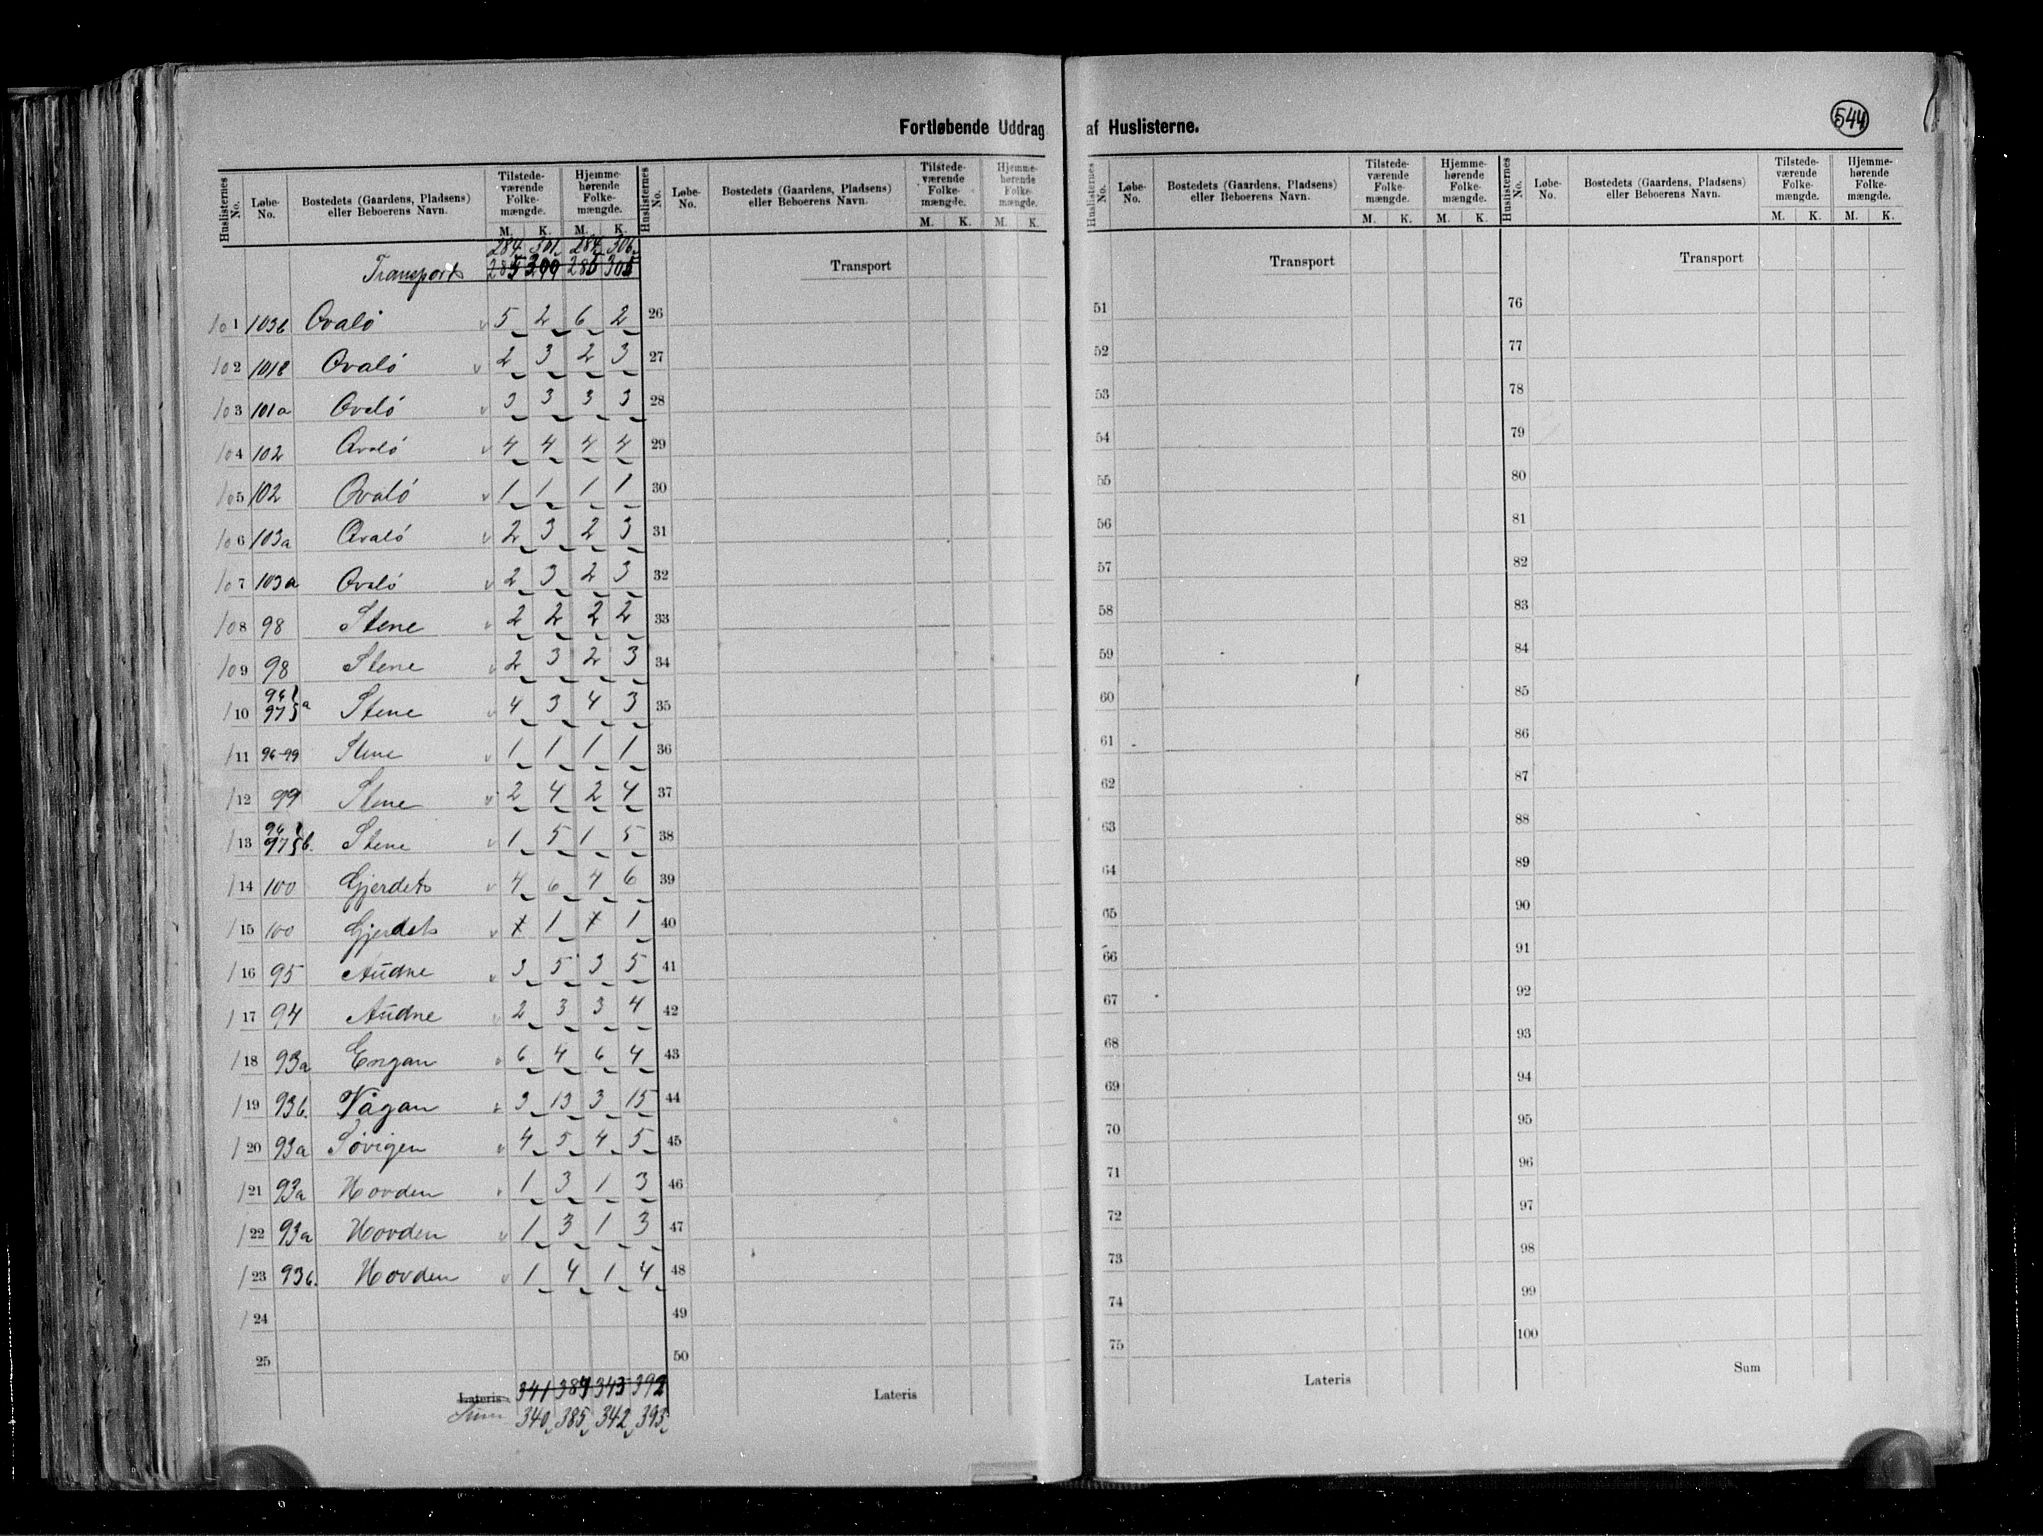 544
Fortløbende Uddrag af Huslisterne.
Huslisternes No. Løbe-No. Bostedets (Gaardens, Pladsens) eller Beboerens Navn. Tilstedeværende Folkemængde. M. K. Hjemmehørende Folkemængde. M. K.
284 301 284 306
Transport 285 299 285 305
101 103b Ovalö 5 2 6 2
102 101b Ovalö 2 3 2 3
103 101a Ovalö 3 3 3 3
104 102 Ovalö 4 4 4 4
105 102 Ovalö 1 1 1 1
106 103a Ovalö 2 3 2 3
107 103a Ovalö 2 3 2 3
108 98 Stene 2 2 2 2
109 98 Stene 2 3 2 3
110 96 97 a Stene 4 3 4 3
111 96-99 Stene 1 1 1 1
112 99 Stene 2 4 2 4
113 96 97 b. Stene 1 5 1 5
114 100 Gjerdets 4 6 4 6
115 100 Gjerdets x 1 x 1
116 95 Audne 3 5 3 5
117 94 Audne 2 3 3 4
118 93a Engan 6 4 6 4
119 93b. Vågan 3 13 3 15
120 93a Søvigen 4 5 4 5
121 93a Hovden 1 3 1 3
122 93a Hovden 1 3 1 3
123 93b. Hovden 1 4 1 4
124
25
Lateris 341 384 343 392
Sum 340 385 342 393
Huslisternes No. Løbe-No. Bostedets (Gaardens, Pladsens) eller Beboerens Navn. Tilstedeværende Folkemængde. M. K. Hjemmehørende Folkemængde. M. K.
Transport
26
27
28
29
30
31
32
33
34
35
36
37
38
39
40
41
42
43
44
45
46
47
48
49
50
Lateris
Huslisternes No. Løbe-No. Bostedets (Gaardens, Pladsens) eller Beboerens Navn. Tilstedeværende Folkemængde. M. K. Hjemmehørende Folkemængde. M. K.
Transport
51
52
53
54
55
56
57
58
59
60
61
62
63
64
65
66
67
68
69
70
71
72
73
74
75
Lateris
Huslisternes No. Løbe-No. Bostedets (Gaardens, Pladsens) eller Beboerens Navn. Tilstedeværende Folkemængde. M. K. Hjemmehørende Folkemængde. M. K.
Transport
76
77
78
79
80
81
82
83
84
85
86
87
88
89
90
91
92
93
94
95
96
97
98
99
100
Sum